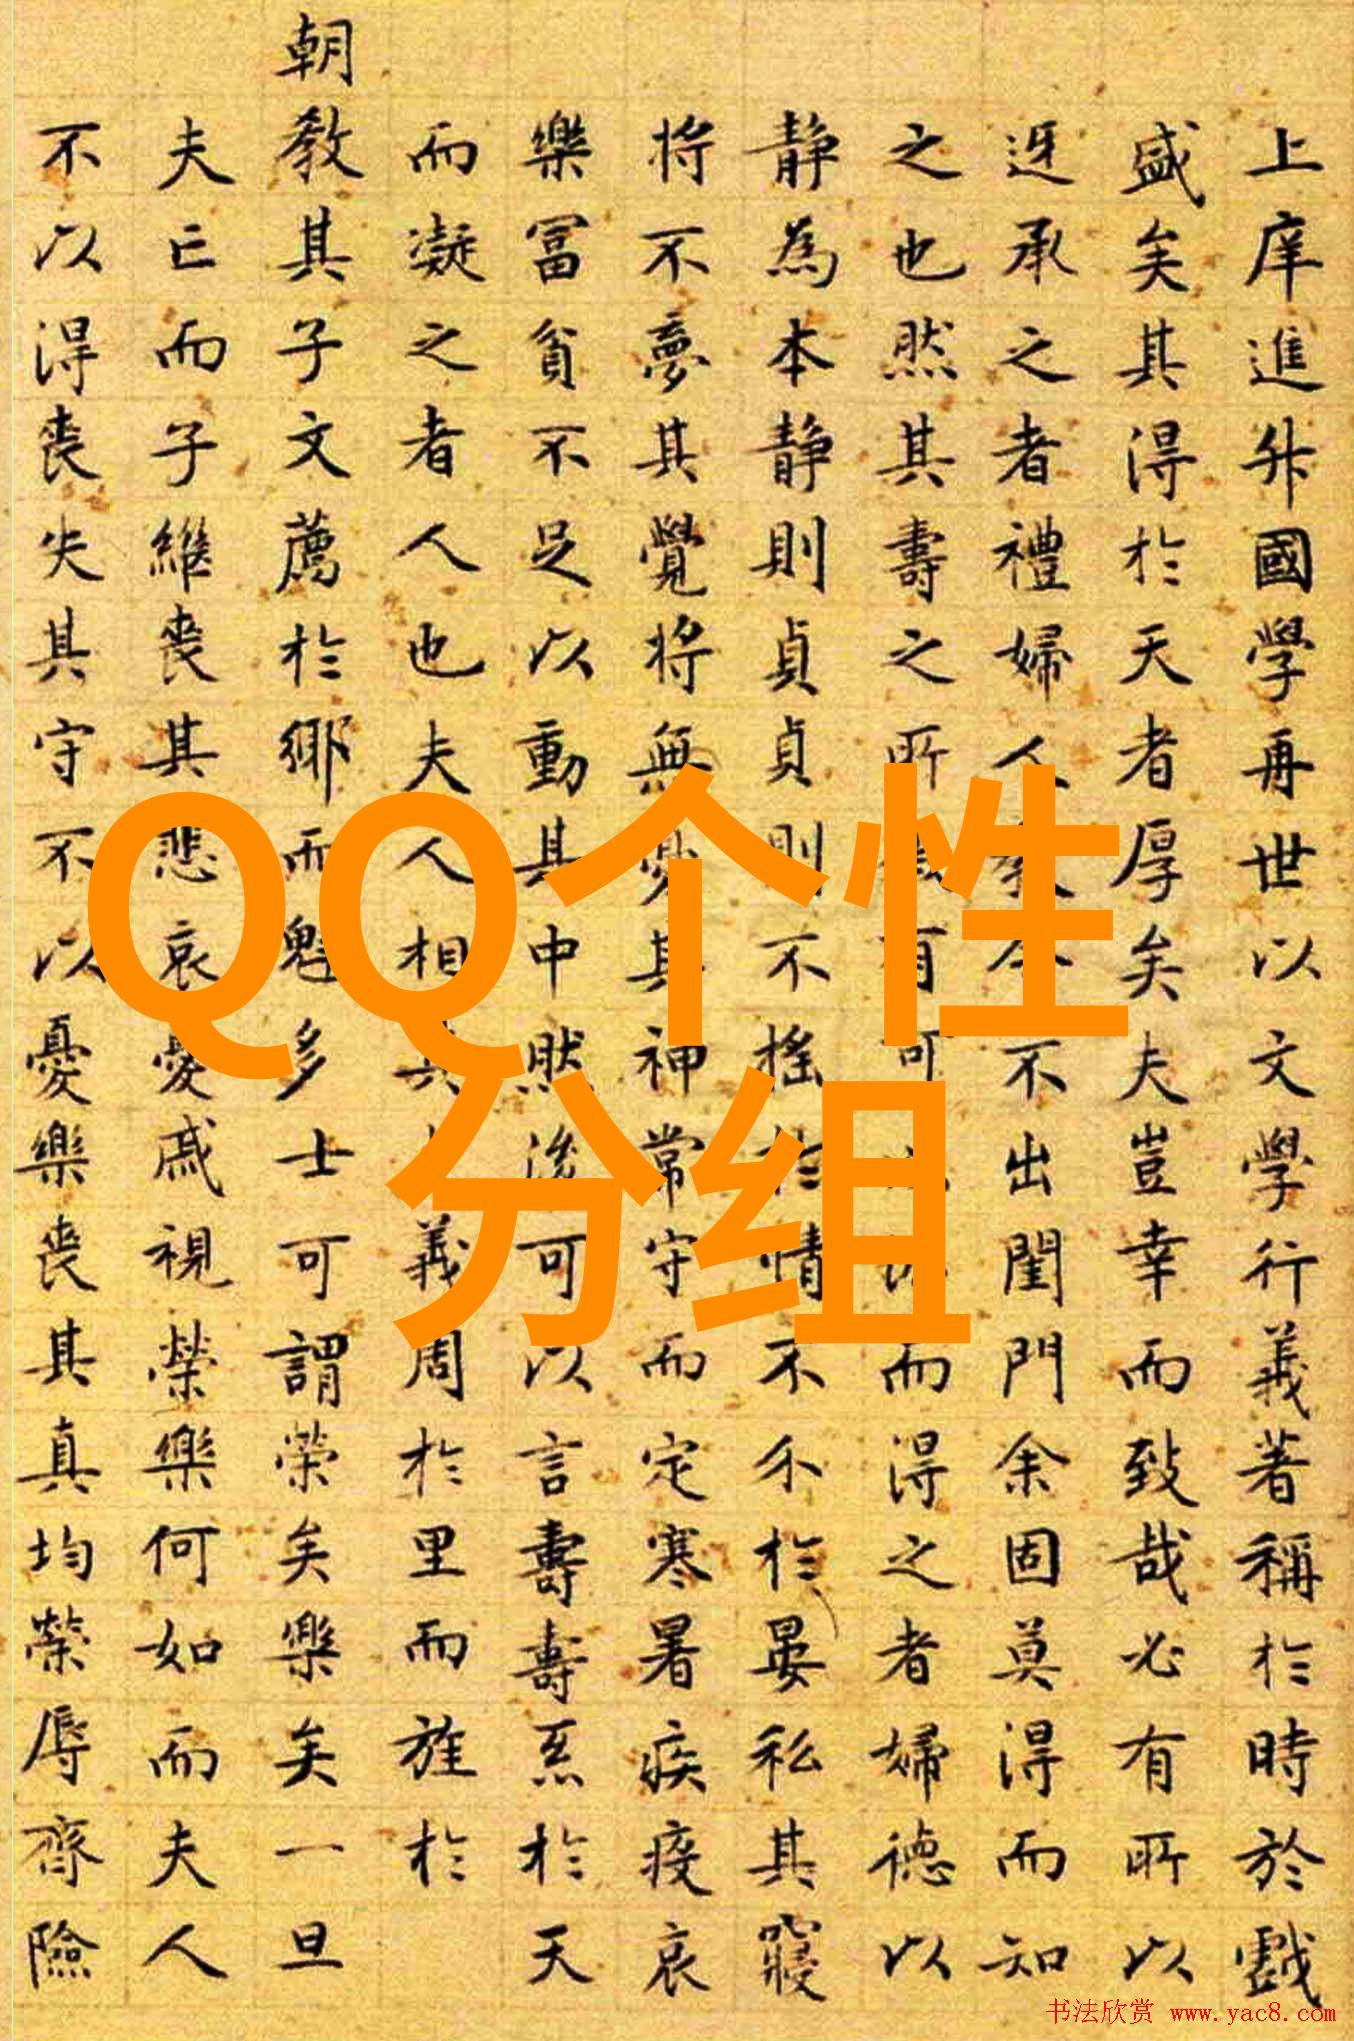 上庠進升國學再世以文學行義著稱於時於戲
盛矣其得於天者厚矣夫豈幸而致哉必有所以
迓承之者禮婦人不出閨門余固莫得而知
之也然其壽之所有可而得之者婦德以
静為本静則貞貞則不搖於情不介於晏私其寢
将不夢其覺将無夢其神常守而定寒暑疾疫哀
樂冨貧不足以動其中然後可以言壽壽系於天
而凝之者人也夫人相其義周於里而旌於
朝教其子文薦於鄉而魁多士可謂榮矣樂矣一旦
夫亡而子繼喪其悲哀憂戚視榮樂何如而夫人
不以得喪失其守不以憂樂喪其真均榮辱齊險
QQ个性
分组
书法欣赏 www.yac8.com